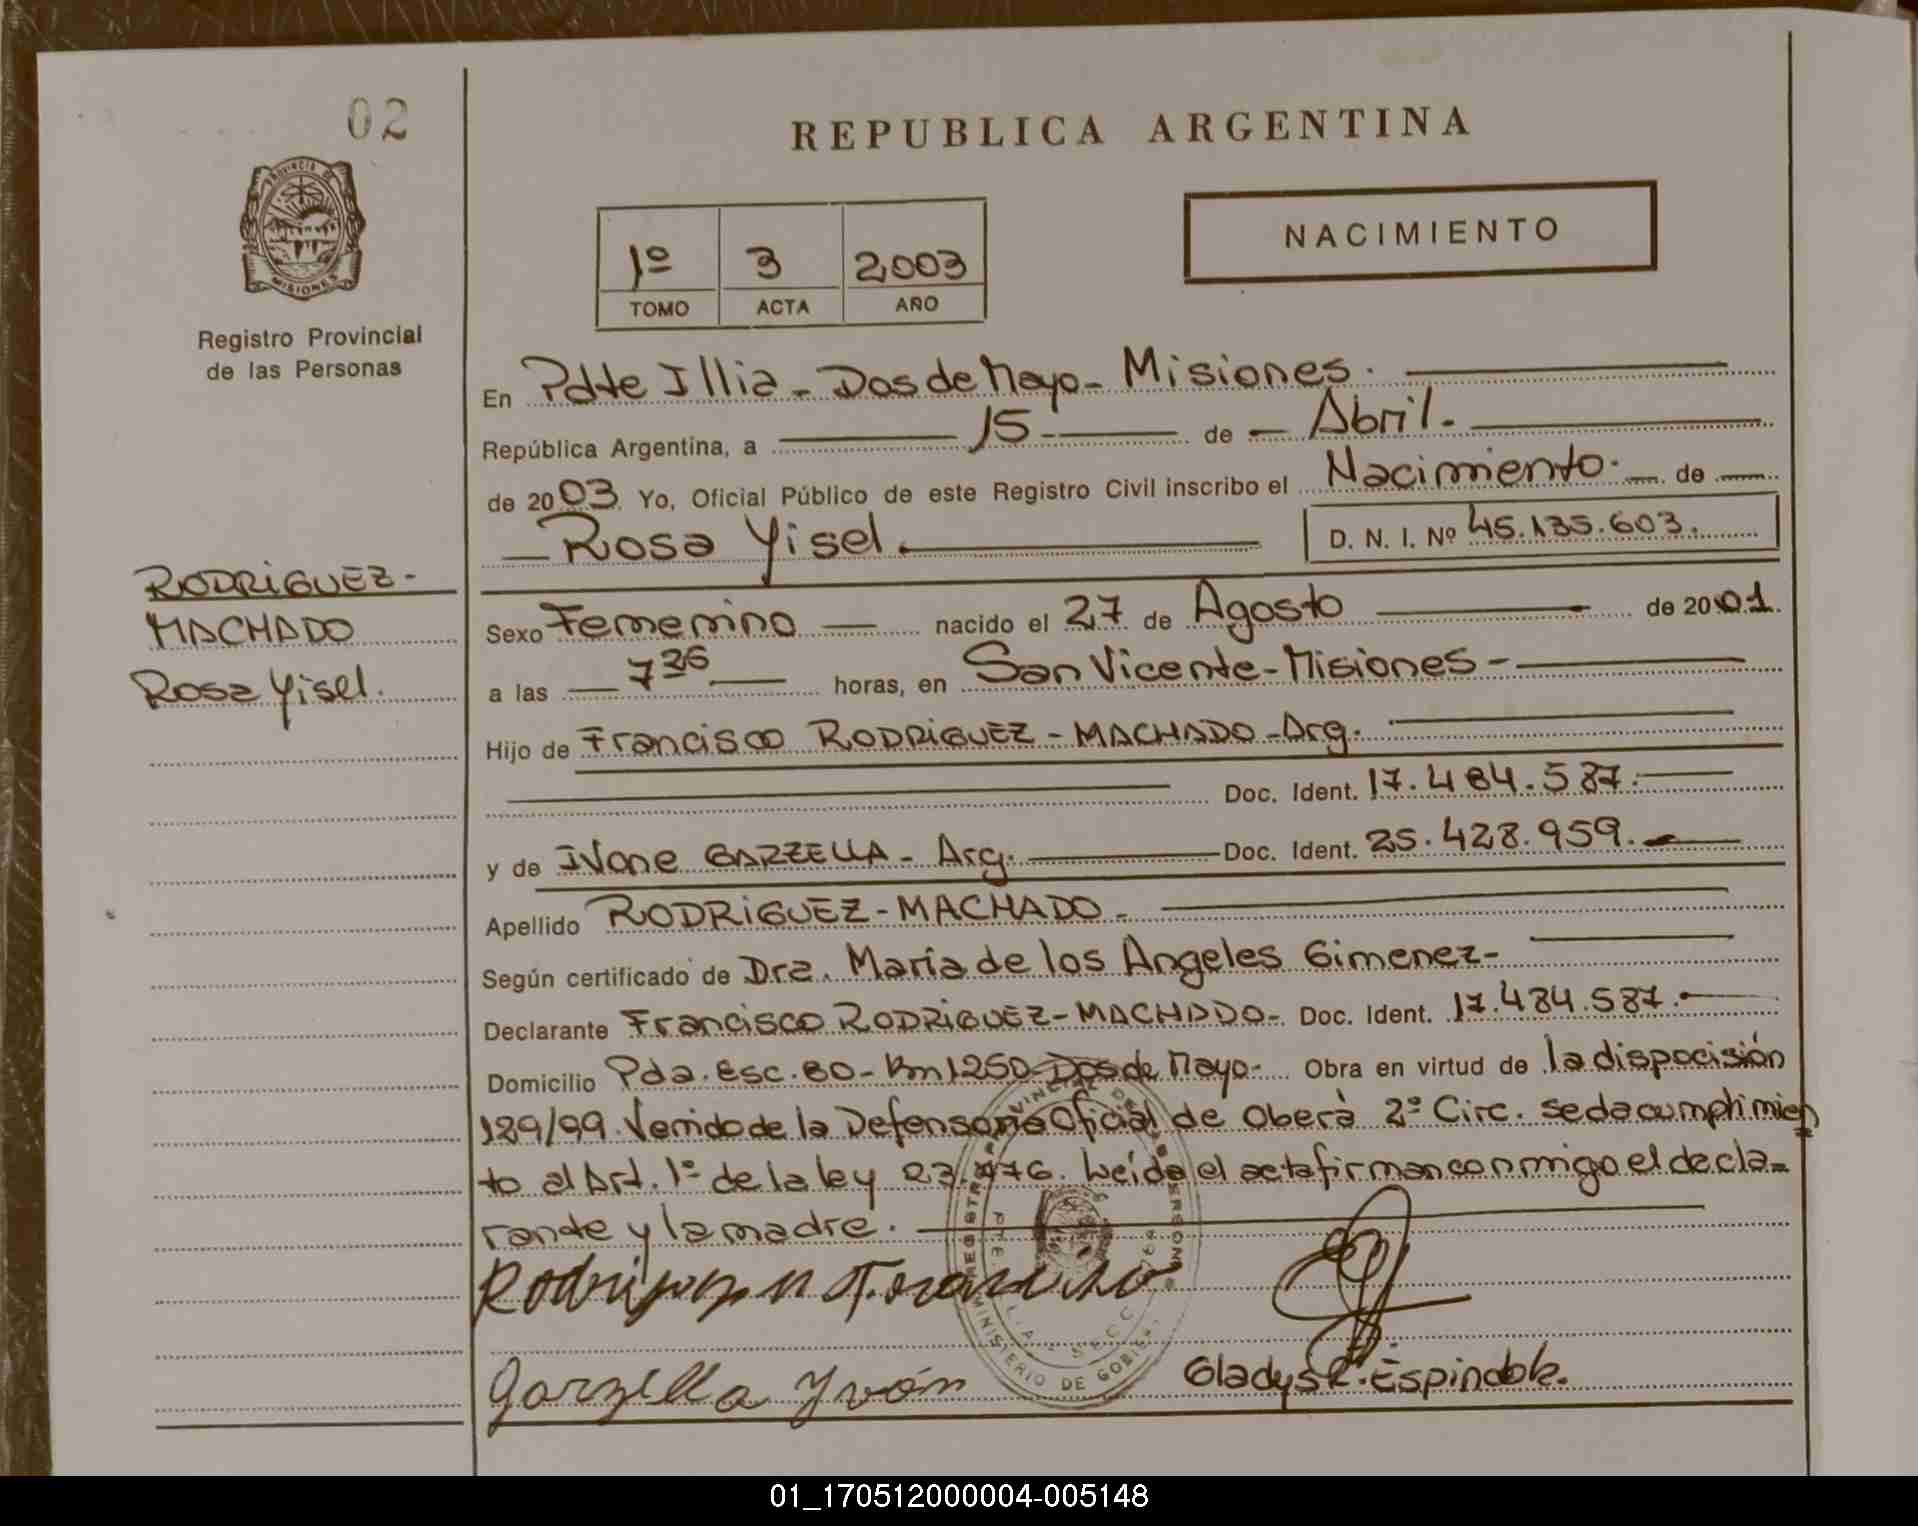 02
PROVINCIA DE
MISIONES
Registro Provincial
de las Personas
REPUBLICA ARGENTINA
1º 3 2003
TOMO ACTA AÑO
NACIMIENTO
En Pdte Illia - Dos de Mayo - Misiones.
República Argentina, a 15 de Abril.
de 2003. Yo, Oficial Público de este Registro Civil inscribo el Nacimiento. de
Rosa Yisel. D. N. I. Nº 45.135.603.
RODRIGUEZ-
MACHADO
Rosa Yisel.
Sexo Femenino nacido el 27 de Agosto de 2001.
a las 7 26 horas, en San Vicente - Misiones -
Hijo de Francisco RODRIGUEZ - MACHADO - Arg.
Doc. Ident. 17.484.587.
y de IVone GARZELLA - Arg. Doc. Ident. 25.428.959.
Apellido RODRIGUEZ - MACHADO -
Según certificado de Dra. María de los Angeles Gimenez-
Declarante Francisco RODRIGUEZ - MACHADO - Doc. Ident. 17.484.587.
Domicilio Pda. Esc. 80 - Km 1250 Dos de Mayo - Obra en virtud de la dispocisión
129/99. Venido de la Defensoria Oficial de Oberà 2º Circ. se da cumplimien
to al Art. 1º de la ley 23.776. Leída el acta firman conmigo el decla=
rante y la madre.
Rodriguez M Francisco
Garzella Yvón
Gladys R. Espindola.
MINISTERIO DE GOBIER
01_170512000004-005148